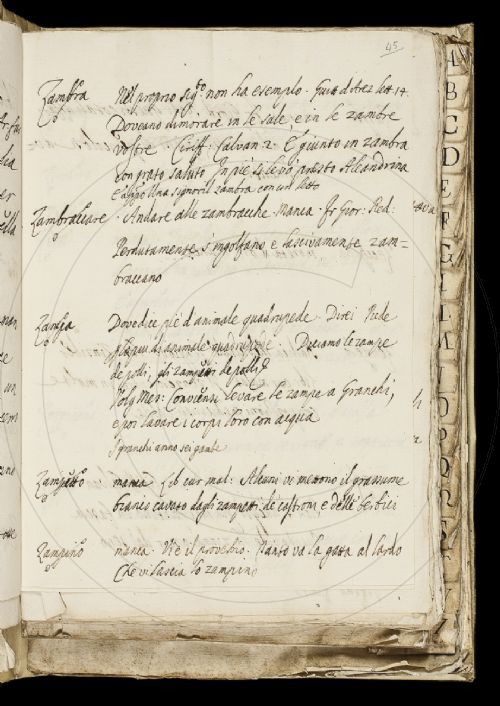 45
Zambra Nel proprio sig.to non ha esempio. Guitt d'Arez lett 14
Doveano dimorare in le sale, e in le zambre
vostre Ciriff. Calvan. 2. E giunto in zambra
con grato saluto In piè si levò presto Aleandrina
E appo Una signoril zambra con un letto
Zambraccare. Andare alle zambracche Manca. Fr Gior: Red:
Perdutamente s'ingolfano e lascivamente zam-
braccano
Zampa Dove dice piè d'animale quadrupede. Direi Piede
d'animale quadrupede Diciamo le zampe
de polli, gli zampetti de polli
Conviensi levare le zampe a Granchi,
e poi lavare i corpi loro con acqua
I granchi anno sei gambe
Zampetto manca Lib cur mal: Alcuni ve mettono il grassume
bianco cavato dagli zampetti de castroni e delle berbici
Zampino manca. V'è il proverbio. Tanto va la gatta al lardo
Che vi lascia lo zampino
A
B
C
D
E
F
G
I
L
M